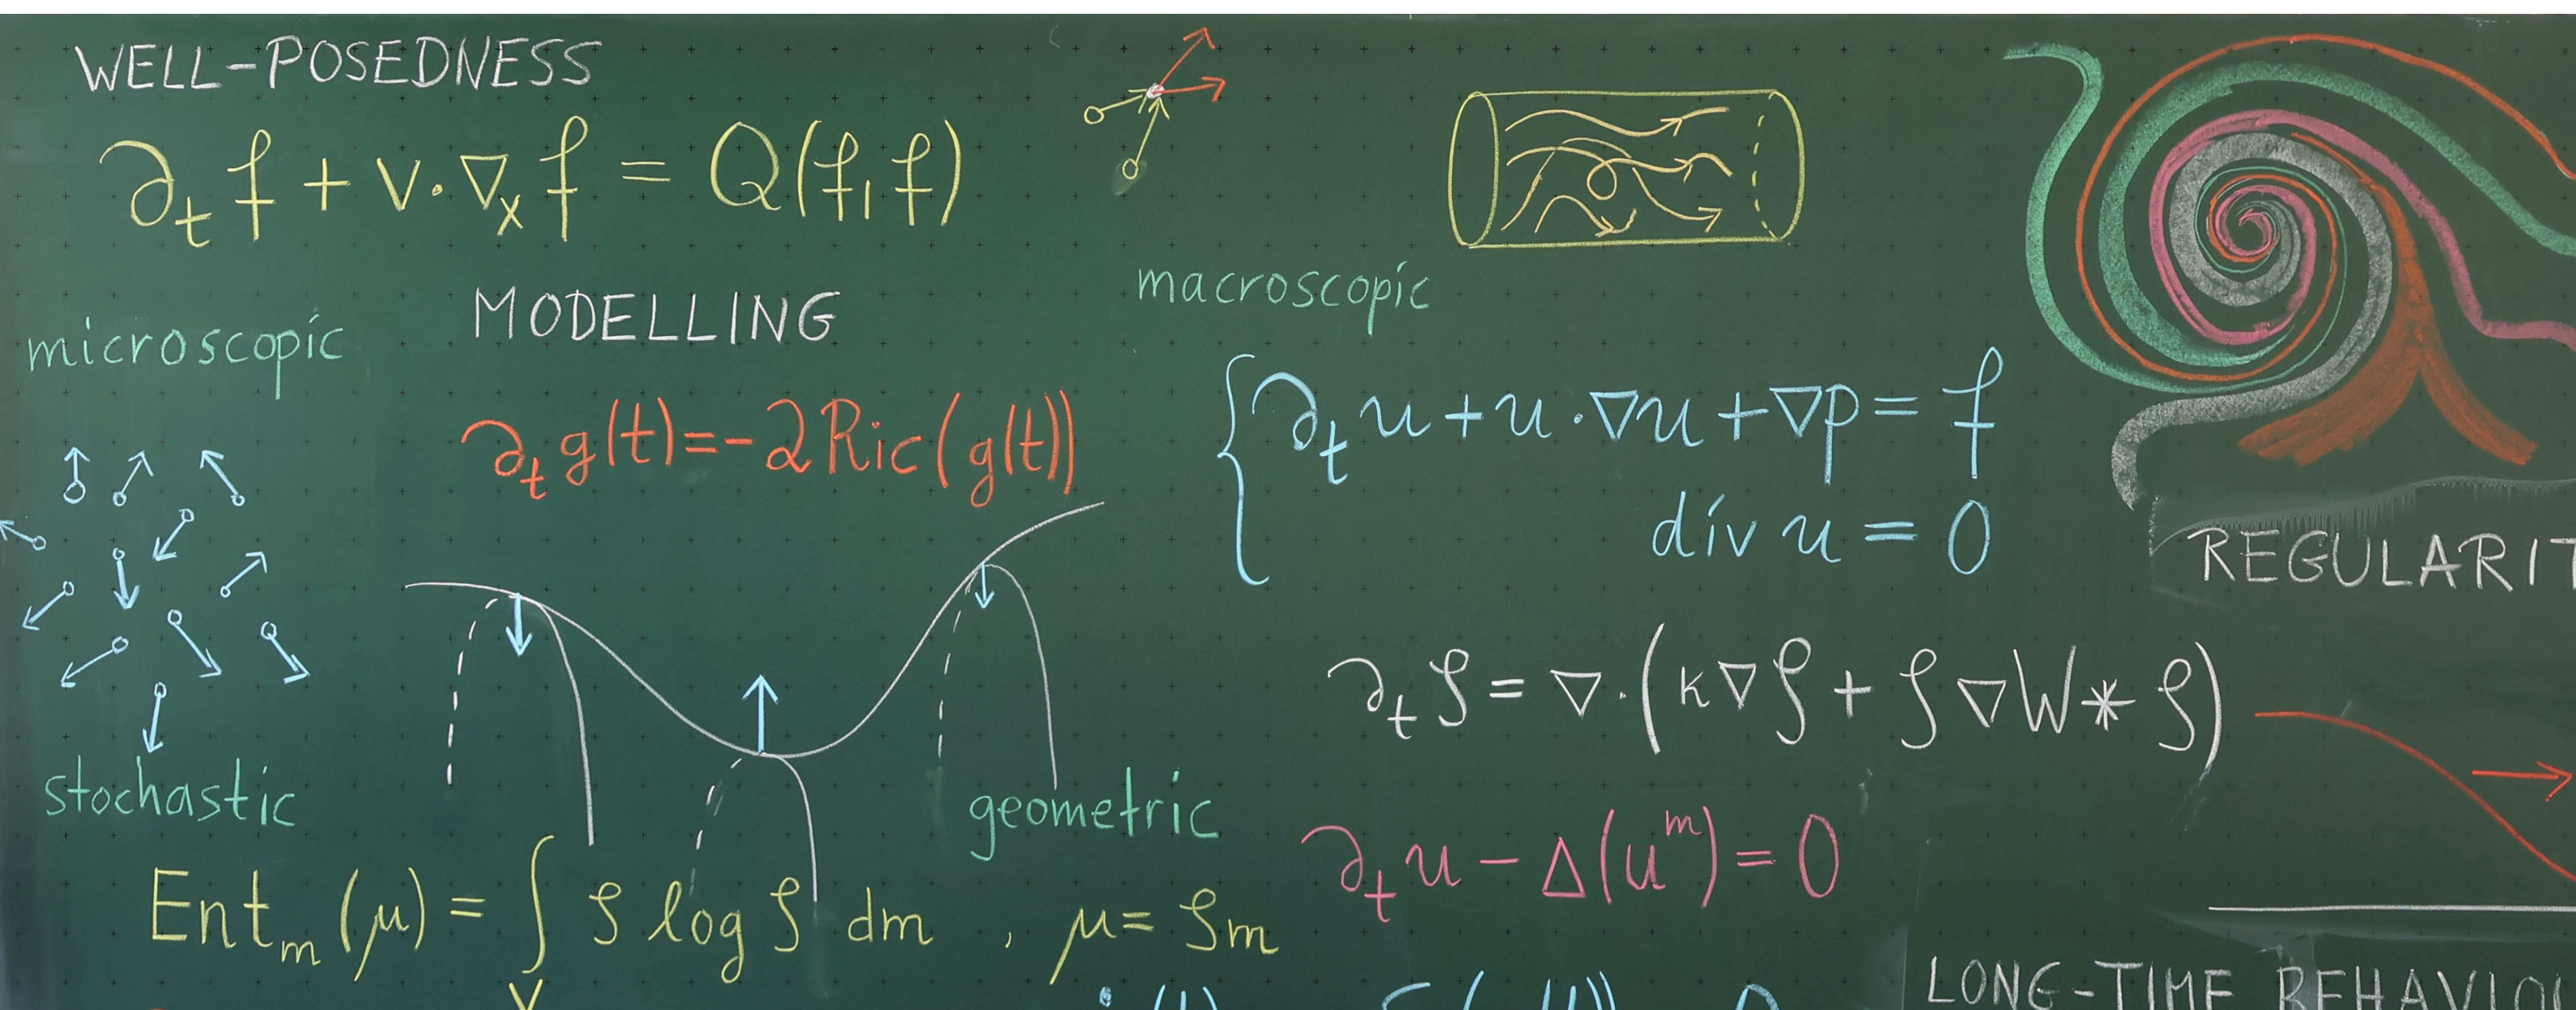 WELL-POSEDNESS
∂ₜf + v·∇ₓf = Q(f,f)
microscopic
MODELLING
macroscopic
∂ₜg(t)=-2Ric(g(t))
∂ₜu+u·∇u+∇p= f
div u = 0
REGULARIT
∂ₜρ = ∇·(κ∇ρ + ρ∇W*ρ)
stochastic
geometric
∂ₜu - Δ(uᵐ) = 0
Entₘ(μ) = ∫ ρ log ρ dm , μ= ρm
LONG-TIME BEHAVIOU